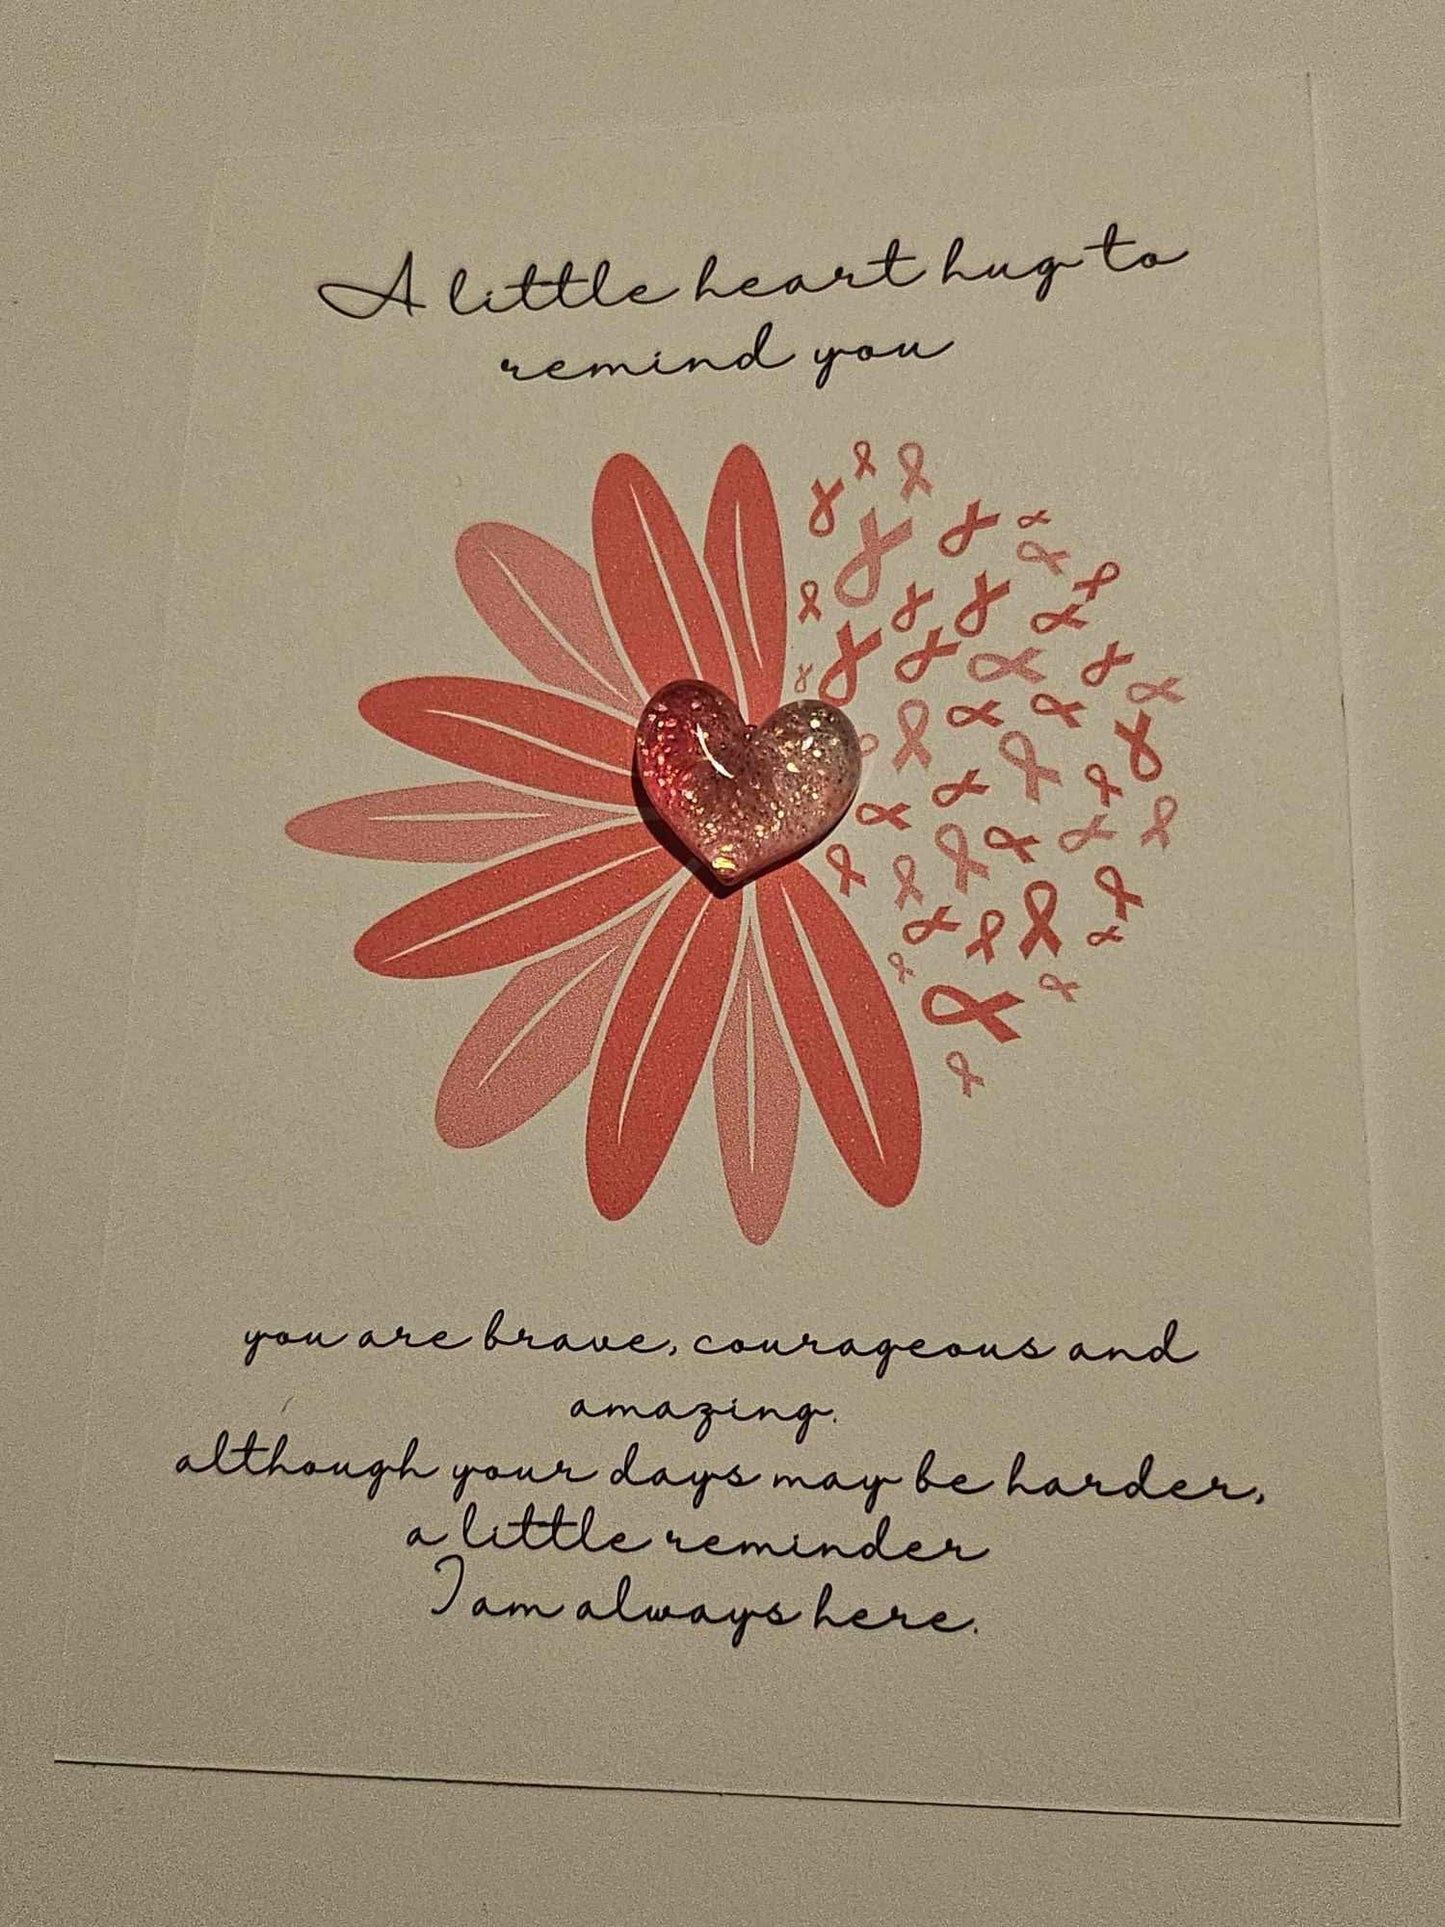 A little heart hug to
remind you
you are brave, courageous and
amazing.
although your days may be harder,
a little reminder
I am always here.